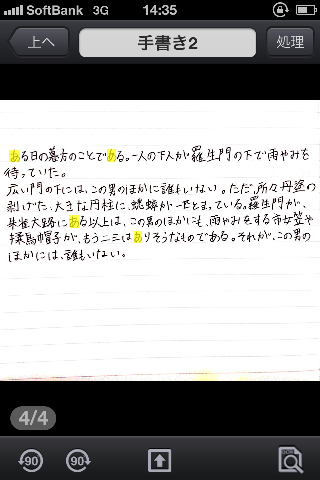 SoftBank 3G 14:35
上へ 手書き2 処理
ある日の暮方のことである。一人の下人が羅生門の下で雨やみを
待っていた。
広い門の下には、この男のほかに誰もいない。ただ、所々丹塗の
剥げた、大きな円柱に、蟋蟀が一匹とまっている。羅生門が、
朱雀大路にある以上は、この男のほかにも、雨やみをする市女笠や
揉烏帽子が、もう二三はありそうなものである。それが、この男の
ほかには、誰もいない。
4/4
90 90 OCR